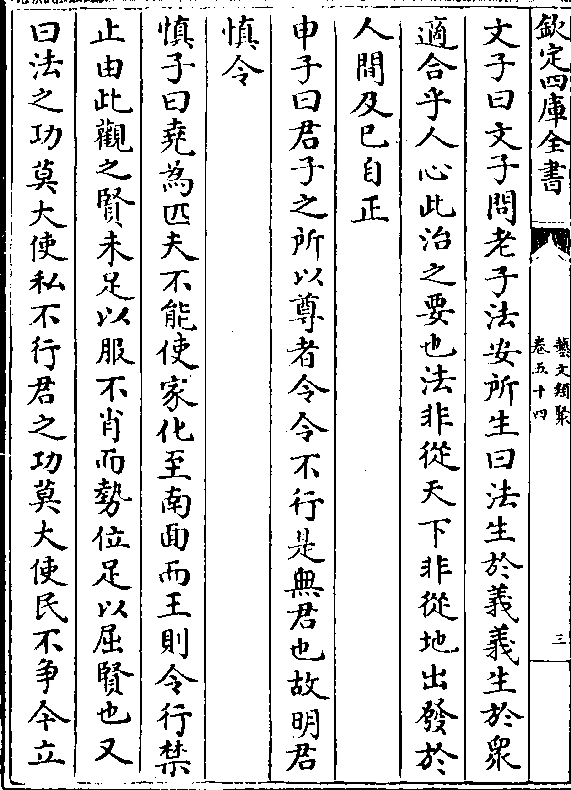 欽定四庫全書
藝文類聚
卷五十四
三
文子曰文子問老子法安所生曰法生於義義生於衆
適合乎人心此治之要也法非從天下非從地出發於
人間及已自正
申子曰君子之所以尊者令令不行是無君也故明君
慎令
慎子曰堯為匹夫不能使家化至南面而王則令行禁
止由此觀之賢未足以服不肖而勢位足以屈賢也又
曰法之功莫大使私不行君之功莫大使民不争今立